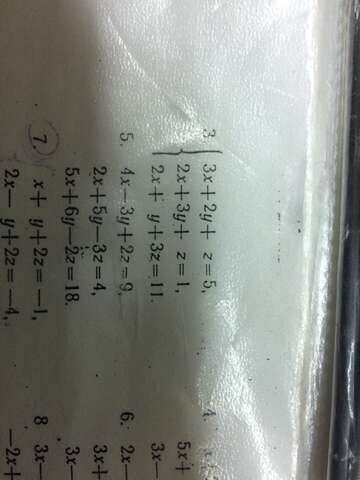 3. 3x+2y+ z=5,
2x+3y+ z=1,
2x+ y+3z=11.
5. 4x-3y+2z=9,
2x+5y-3z=4,
5x+6y-2z=18.
7. x+ y+2z=-1,
2x- y+2z=-4,
4.
5x+
3x-
6. 2x-
3x+
3x-
8 3x-
-2x+